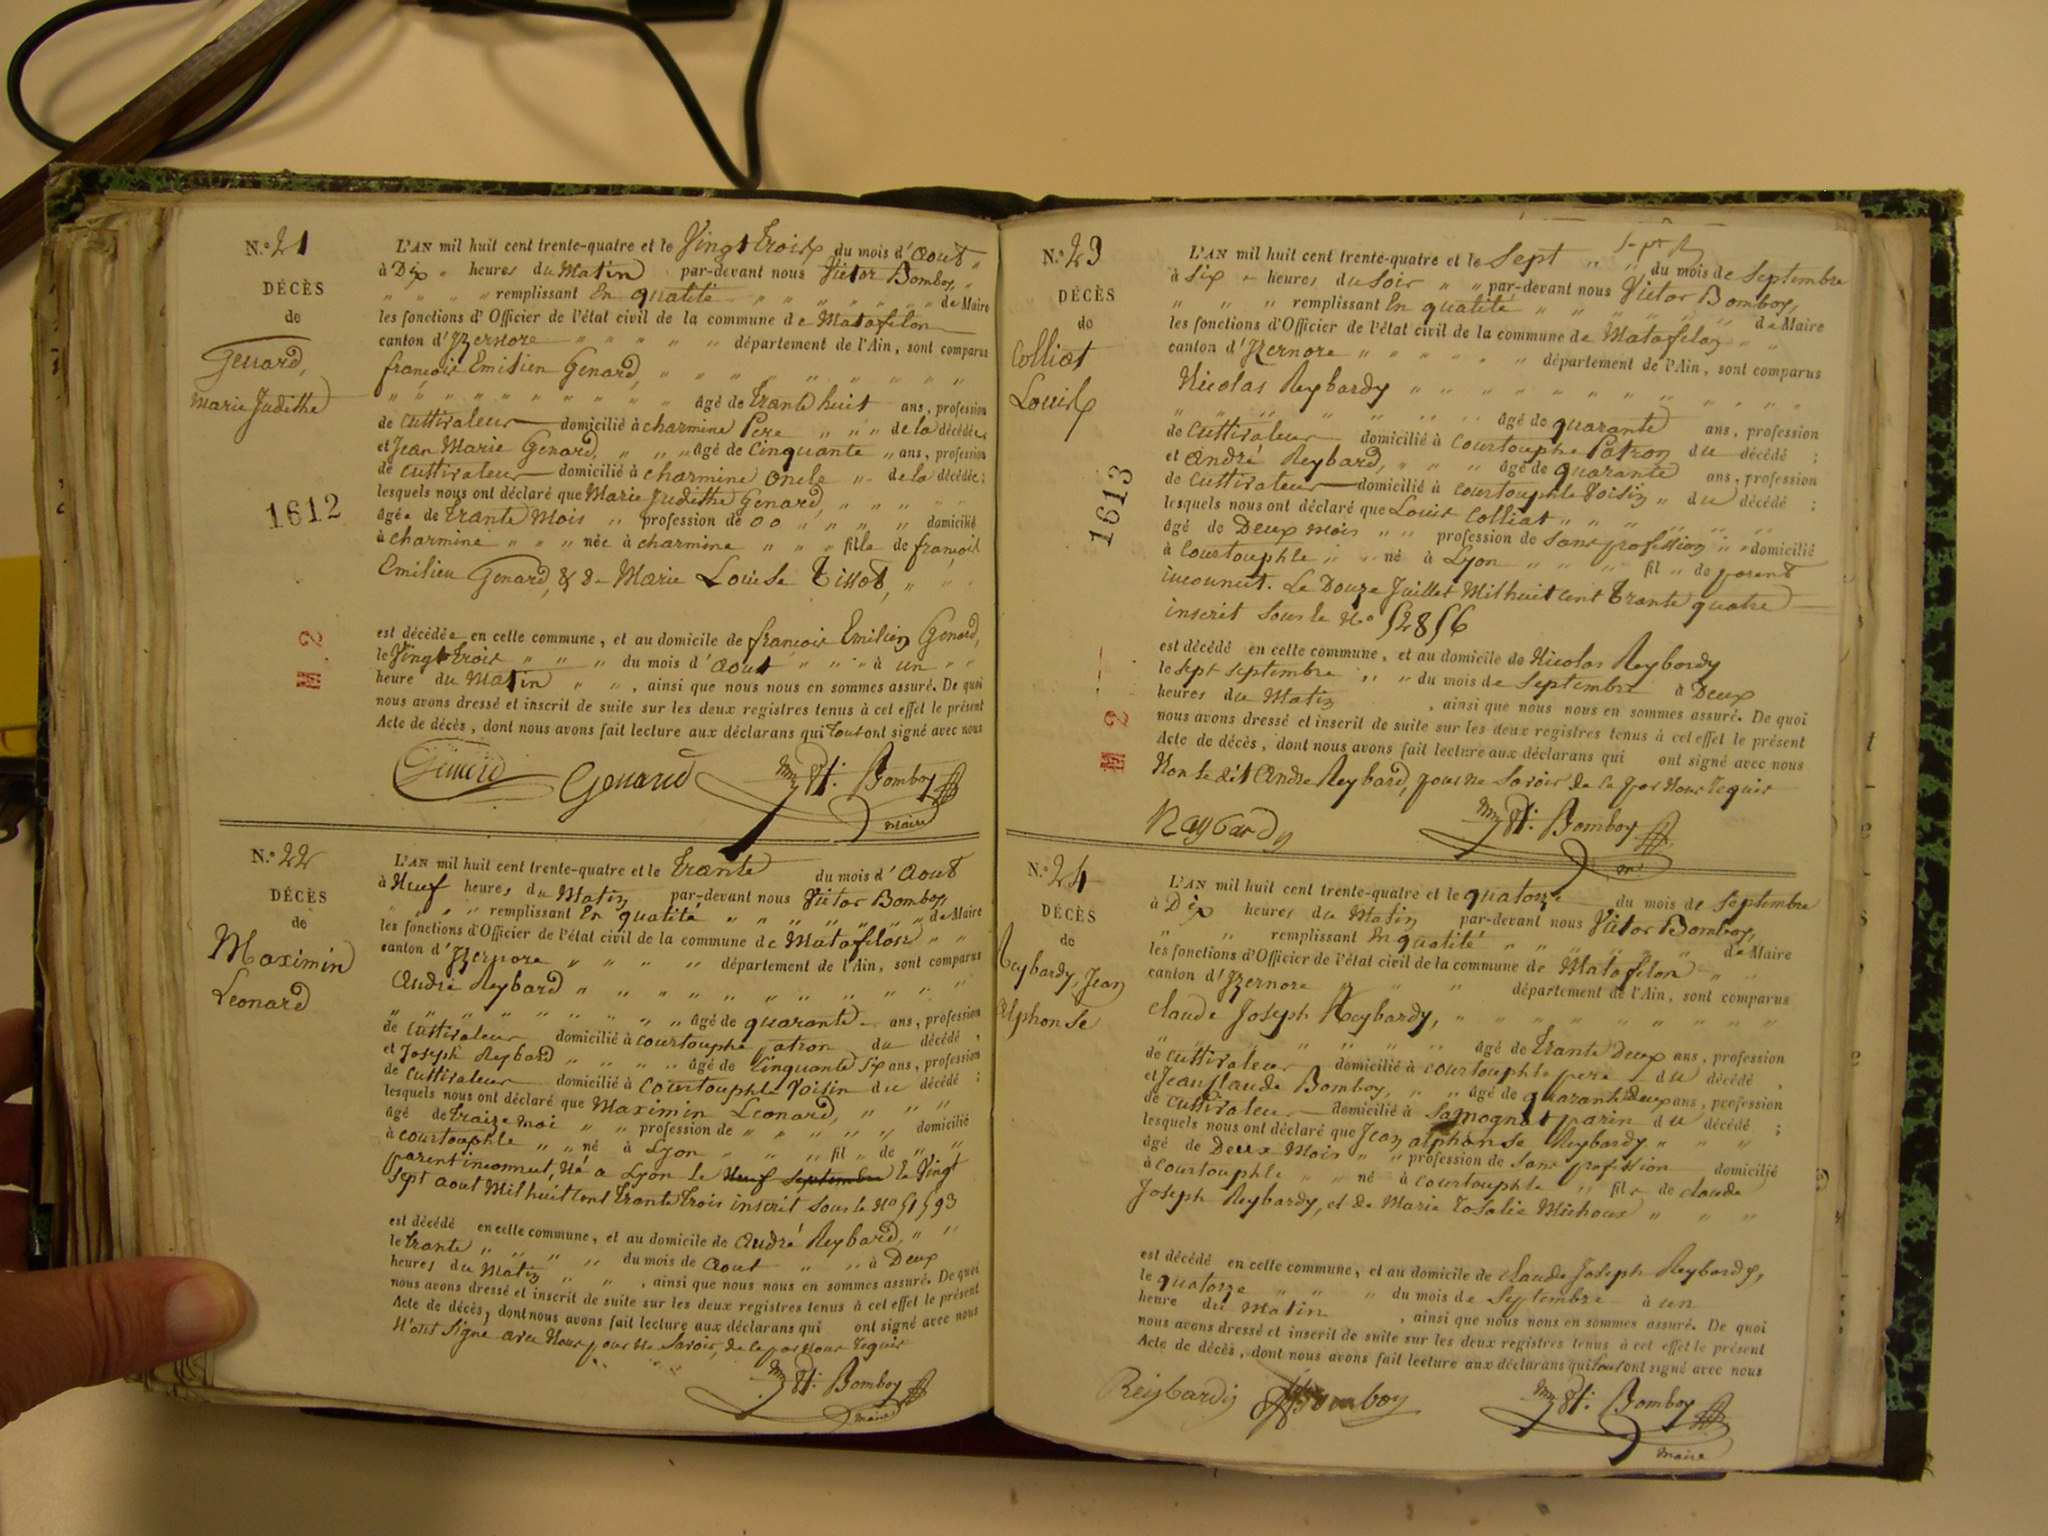 N.º 21
DÉCÈS
de
Genard,
Marie Judithe
1612
L'AN mil huit cent trente-quatre et le Vingt trois du mois d'Aout "
à Dix " heures du Matin par-devant nous Victor Bomboy, "
" " " " remplissant En qualité " " " " " " " de Maire
les fonctions d'Officier de l'état civil de la commune de Matafelon
canton d'Izernore " " " " " département de l'Ain, sont comparus
françois Emilien Genard, " " " " " " " " "
" " " " " " " " " " âgé de trante huit ans, profession
de Cultivateur domicilié à charmine Pere " " " de la décédée,
et Jean Marie Genard, " " " âgé de Cinquante " ans, profession
de Cultivateur domicilié à charmine oncle " de la décédée;
lesquels nous ont déclaré que Marie Judithe Genard, " " "
âgée de trante Mois " profession de " " " " " domicilié
à charmine " " " née à charmine " " " fille de françois
Emilien Genard, & de Marie Louise Tissot, " " "
est décédée en cette commune, et au domicile de françois Emilien Genard,
le Vingt trois " " " du mois d'Aout " " " à un " "
heure du Matin " " , ainsi que nous nous en sommes assuré. De quoi
nous avons dressé et inscrit de suite sur les deux registres tenus à cet effet le présent
Acte de décès, dont nous avons fait lecture aux déclarans qui tous ont signé avec nous
Genard Genard Bomboy
maire
N.º 22
DÉCÈS
de
Maximin
Leonard
L'AN mil huit cent trente-quatre et le trante du mois d'Aout
à Neuf heures du Matin par-devant nous Victor Bomboy,
" " " " remplissant En qualité " " " " " " " de Maire
les fonctions d'Officier de l'état civil de la commune de Matafelon " "
canton d'Izernore " " " " " département de l'Ain, sont comparus
André Reybard " " " " " " " " " "
" " " " " " " " " âgé de quarante ans, profession
de Cultivateur domicilié à courtouphe patron du décédé,
et Joseph Reybard " " " " âgé de Cinquante Six ans, profession
de Cultivateur domicilié à Courtouphle Voisin du décédé;
lesquels nous ont déclaré que Maximin Leonard, " " "
âgé de traize moi " " profession de " " " " " domicilié
à courtouphle " " né à Lyon " " " fil " de "
parent inconnut, Né a Lyon le Neuf Septembre le Vingt
Sept aout Mil huit Cent trante trois inscrit Sous le No 51593
est décédé en cette commune, et au domicile de André Reybard, " "
le trante " " " " du mois de Aout " " à Deux
heures du Matin " " , ainsi que nous nous en sommes assuré. De quoi
nous avons dressé et inscrit de suite sur les deux registres tenus à cet effet le présent
Acte de décès, dont nous avons fait lecture aux déclarans qui ont signé avec nous
N'ont Signé avec Nous pour ne Savoir, de ce par Nous Requis
Bomboy
maire
N.º 23
DÉCÈS
de
Colliat
Louis
1613
L'AN mil huit cent trente-quatre et le Sept " " du mois de Septembre
à Six " heures du Soir " " par-devant nous Victor Bomboy,
" " " remplissant En qualité " " " " " " de Maire
les fonctions d'Officier de l'état civil de la commune de Matafelon " "
canton d'Izernore " " " " " " département de l'Ain, sont comparus
Nicolas Reybardy " " " " " " " " " "
" " " " " " " " âgé de quarante ans, profession
de Cultivateur domicilié à Courtouphe Patron du décédé;
et André Reybard, " " " " âgé de quarante ans, profession
de Cultivateur domicilié à Courtouphle Voisin " du décédé;
lesquels nous ont déclaré que Louis Colliat " " " " "
âgé de Deux mois " " profession de Sans profession " " domicilié
à Courtouphle " " né à Lyon " " " fil " de parent
inconnut. Le Douze Juillet Mil huit cent trante quatre
inscrit Sous le No 52856
est décédé en cette commune, et au domicile de Nicolas Reybardy
le Sept Septembre " " du mois de Septembre à Deux
heures du Matin , ainsi que nous nous en sommes assuré. De quoi
nous avons dressé et inscrit de suite sur les deux registres tenus à cet effet le présent
Acte de décès, dont nous avons fait lecture aux déclarans qui ont signé avec nous
Non le dit André Reybard, pour ne Savoir de ce par Nous Requis
Raybardy Bomboy
N.º 24
DÉCÈS
de
Reybardy, Jean
Alphonse
L'AN mil huit cent trente-quatre et le quatorze du mois de Septembre
à Dix heures du Matin par-devant nous Victor Bomboy,
" " remplissant En qualité " " " " " " de Maire
les fonctions d'Officier de l'état civil de la commune de Matafelon " "
canton d'Izernore " " " département de l'Ain, sont comparus
Claude Joseph Reybardy, " " " " " " " " "
" " " " " " " âgé de trante Deux ans, profession
de Cultivateur domicilié à Courtouphle pere du décédé,
et Jean Claude Bomboy, " " âgé de quarante deux ans, profession
de Cultivateur domicilié à Samognat parin du décédé;
lesquels nous ont déclaré que Jean alphonse Reybardy " " "
âgé de Deux Mois " " profession de Sans profession domicilié
à Courtouphle " " né à Courtouphle " fils de Claude
Joseph Reybardy, et de Marie Rosalie Michoux " " "
est décédé en cette commune, et au domicile de Claude Joseph Reybardy,
le quatorze " " " du mois de Septembre à un
heure du Matin , ainsi que nous nous en sommes assuré. De quoi
nous avons dressé et inscrit de suite sur les deux registres tenus à cet effet le présent
Acte de décès, dont nous avons fait lecture aux déclarans qui tous ont signé avec nous
Reybardy Bomboy Bomboy
maire